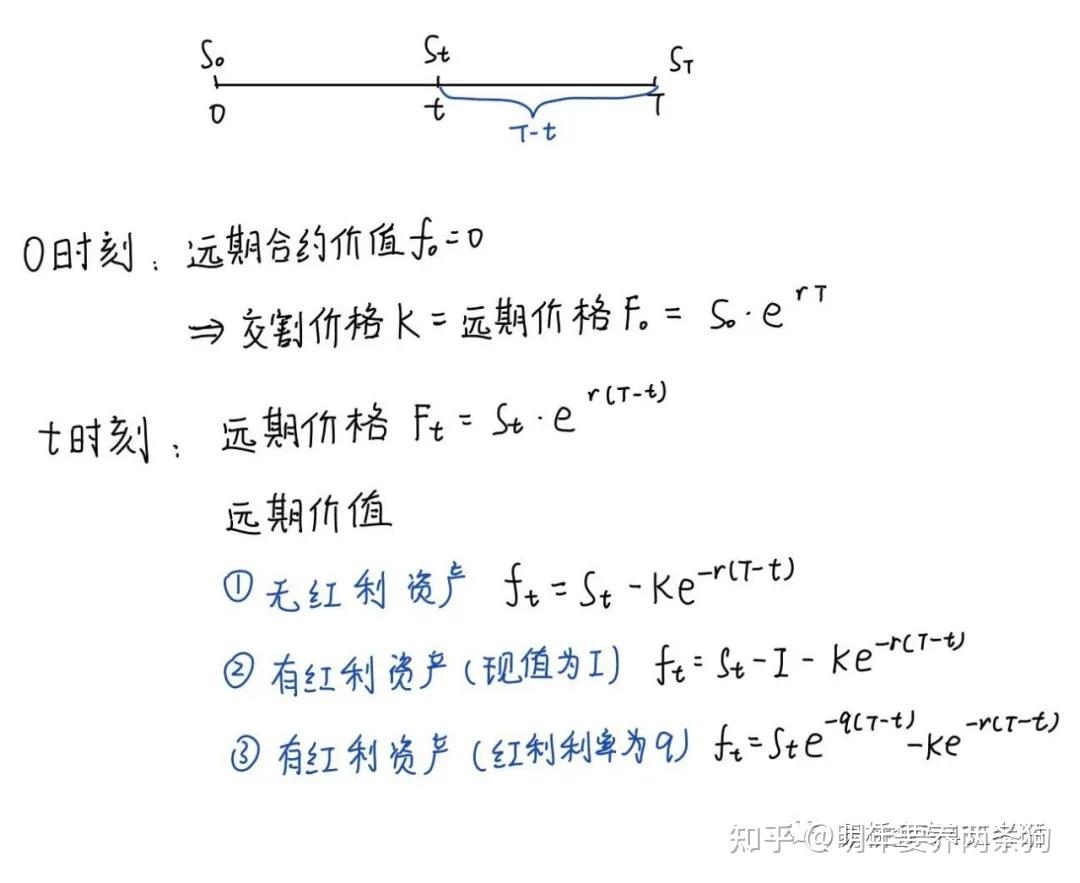 S₀ Sₜ S_T
0 t T
T-t
0时刻：远期合约价值f₀=0
⇒ 交割价格K=远期价格F₀ = S₀·e^{rT}
t时刻：远期价格 Fₜ = Sₜ·e^{r(T-t)}
远期价值
① 无红利资产 fₜ=Sₜ-Ke^{-r(T-t)}
② 有红利资产(现值为I) fₜ=Sₜ-I-Ke^{-r(T-t)}
③ 有红利资产(红利利率为q) fₜ=Sₜe^{-q(T-t)}-Ke^{-r(T-t)}
知乎 @明年要养两条狗